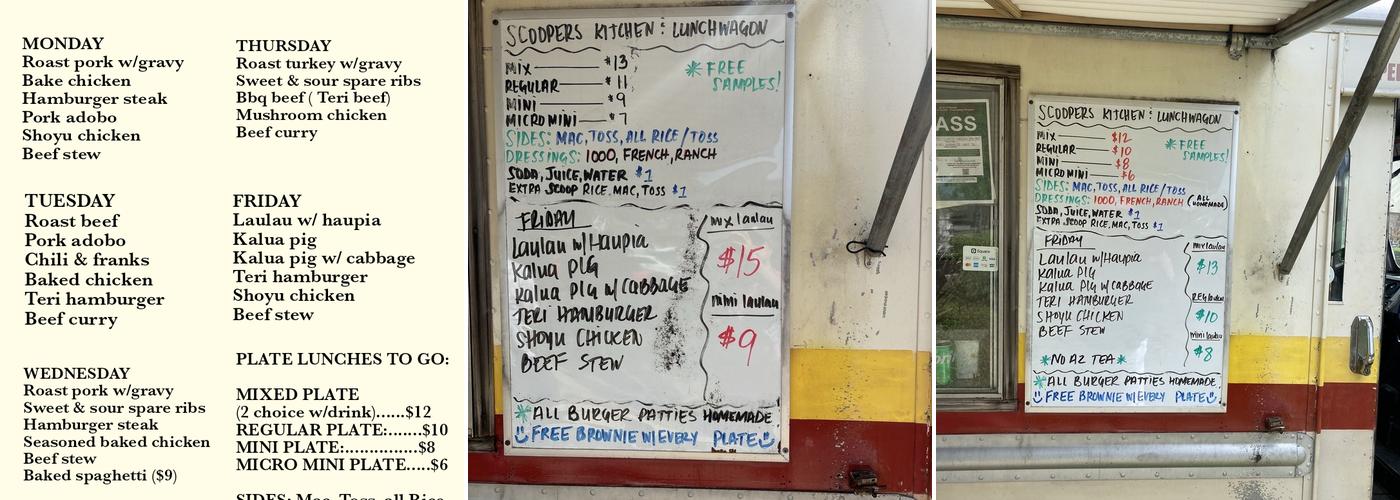 MONDAY
Roast pork w/gravy
Bake chicken
Hamburger steak
Pork adobo
Shoyu chicken
Beef stew
TUESDAY
Roast beef
Pork adobo
Chili & franks
Baked chicken
Teri hamburger
Beef curry
WEDNESDAY
Roast pork w/gravy
Sweet & sour spare ribs
Hamburger steak
Seasoned baked chicken
Beef stew
Baked spaghetti ($9)
THURSDAY
Roast turkey w/gravy
Sweet & sour spare ribs
Bbq beef ( Teri beef)
Mushroom chicken
Beef curry
FRIDAY
Laulau w/ haupia
Kalua pig
Kalua pig w/ cabbage
Teri hamburger
Shoyu chicken
Beef stew
PLATE LUNCHES TO GO:
MIXED PLATE
(2 choice w/drink)......$12
REGULAR PLATE:.......$10
MINI PLATE:...............$8
MICRO MINI PLATE.....$6
SIDES: Mac, Toss, all Rice
SCOOPERS KITCHEN : LUNCHWAGON
MIX $13
REGULAR $11
MINI $9
MICRO MINI $7
* FREE SAMPLES!
SIDES: MAC, TOSS, ALL RICE / TOSS
DRESSINGS: 1000, FRENCH, RANCH
SODA, JUICE, WATER $1
EXTRA SCOOP RICE, MAC, TOSS $1
FRIDAY
Laulau w/Haupia
Kalua PIG
Kalua PIG w/ CABBAGE
TERI HAMBURGER
SHOYU CHICKEN
BEEF STEW
mix laulau
$15
mini laulau
$9
*ALL BURGER PATTIES HOMEMADE
FREE BROWNIE W/ EVERY PLATE
ASS
Square
SCOOPERS KITCHEN : LUNCHWAGON
MIX $12
REGULAR $10
MINI $8
MICRO MINI $6
* FREE SAMPLES!
SIDES: MAC, TOSS, ALL RICE / TOSS
DRESSINGS: 1000, FRENCH, RANCH (ALL HOMEMADE)
SODA, JUICE, WATER $1
EXTRA SCOOP RICE, MAC, TOSS $1
FRIDAY
Laulau w/Haupia
Kalua PIG
Kalua PIG w/ CABBAGE
TERI HAMBURGER
SHOYU CHICKEN
BEEF STEW
*NO AZ TEA*
mix laulau
$13
reg laulau
$10
mini laulau
$8
*ALL BURGER PATTIES HOMEMADE
FREE BROWNIE W/ EVERY PLATE